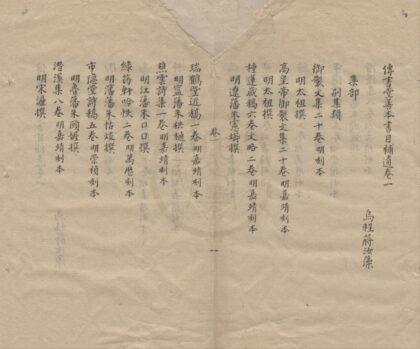 傳書堂善本書目補遺卷一
烏程蔣汝藻
集部
別集類
御製文集二十卷明刻本
明太祖撰
高皇帝御製文集二十卷明嘉靖刻本
明太祖撰
種蓮歲稿六卷文略二卷明嘉靖刻本
明遼藩朱憲㸅撰
卷一
瑞鶴堂近稿一卷明嘉靖刻本
明藩朱撰
詩集一卷明嘉靖刻本
明江藩朱口口撰
綠筠軒吟帙二卷明萬曆刻本
明瀋藩朱恬烄撰
市隱堂詩稿五卷明崇禎刻本
明魯藩朱頤撰
潛溪集八卷明嘉靖刻本
明宋濂撰